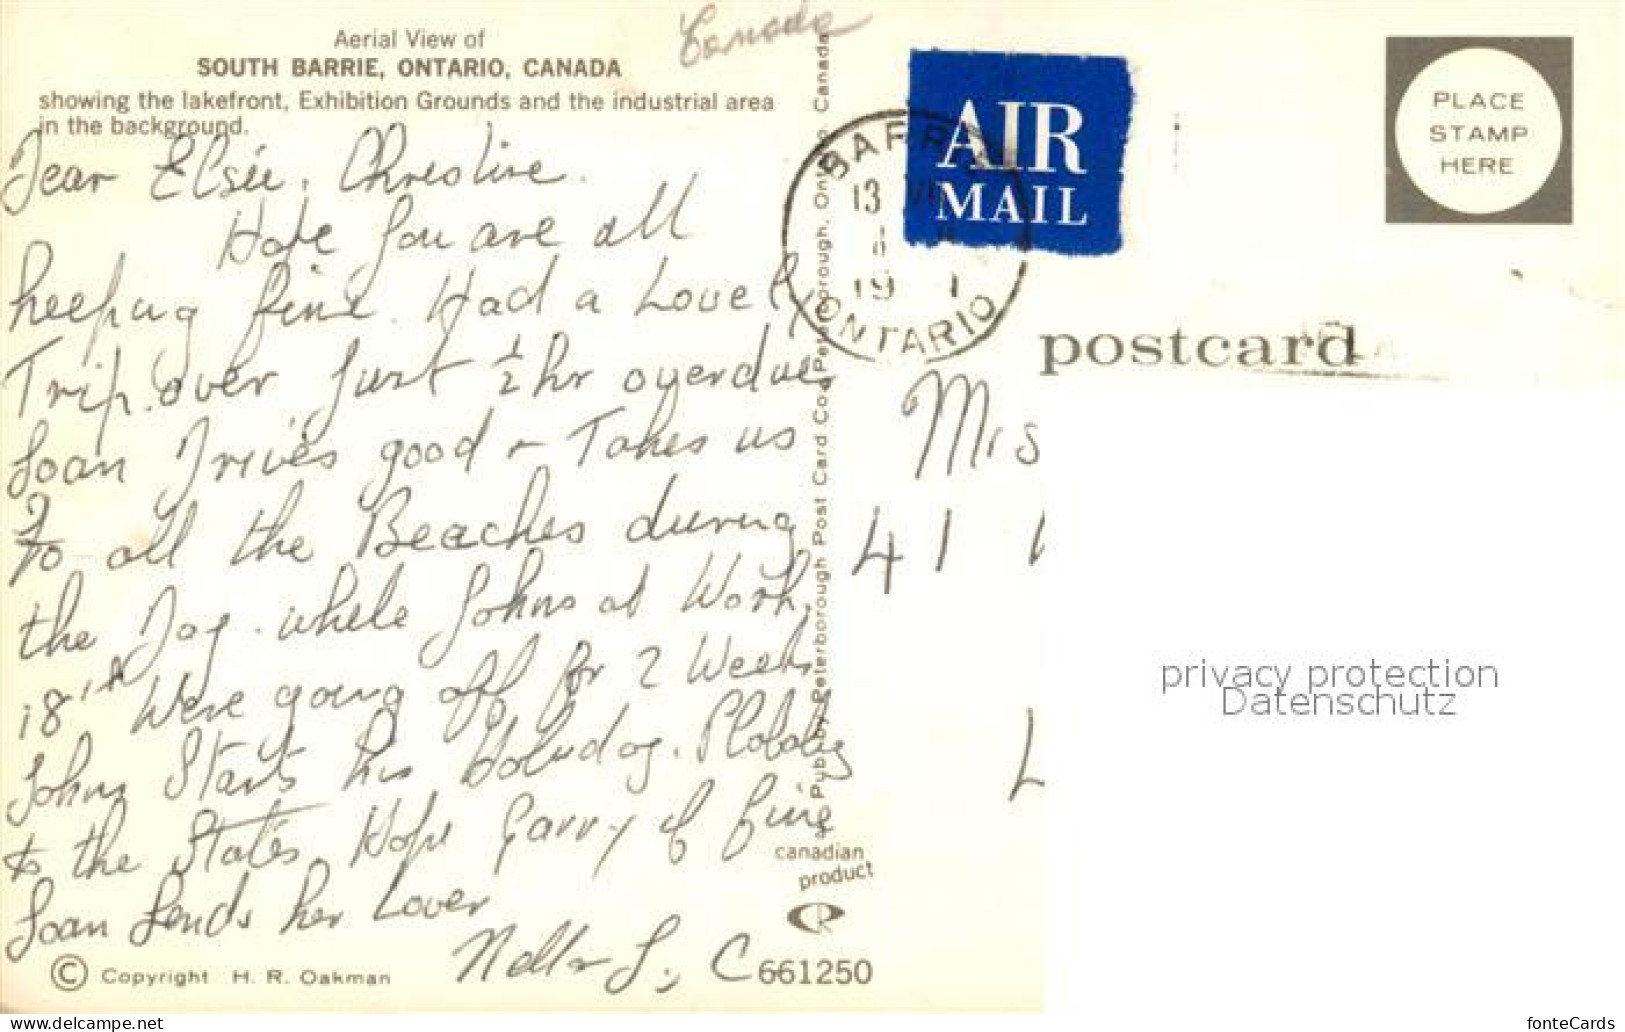 Canada
Aerial View of
SOUTH BARRIE, ONTARIO, CANADA
showing the lakefront, Exhibition Grounds and the industrial area
in the background.
Dear Elsie, Christine.
Hope you are all
keeping fine. Had a Lovely
Trip over Just 1/2 hr overdue
Joan Drives good + Takes us
To all the Beaches during
the Day. while Johns at Work,
18th Were going off for 2 Weeks
Johns Starts his Holiday.
to the States. Hope Garry fine
Joan Sends her Love
J. C
© Copyright H. R. Oakman
Pub. by Peterborough Post Card Co., Peterborough, Ontario, Canada
canadian
product
CR
661250
AIR
MAIL
BARRIE
13
19 1
ONTARIO
PLACE
STAMP
HERE
postcard
Mis
41
L
privacy protection
Datenschutz
www.delcampe.net
fonteCards